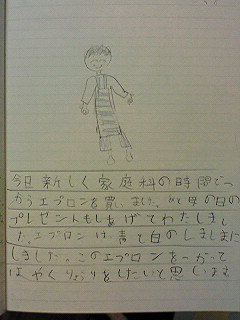 今日新しく家庭科の時間でつ
かうエプロンを買いました。あと母の日の
プレゼントもしあげてわたしまし
た。エプロンは、青と白のしましまに
しました。このエプロンをつかって
はやくりょうりをしたいと思います